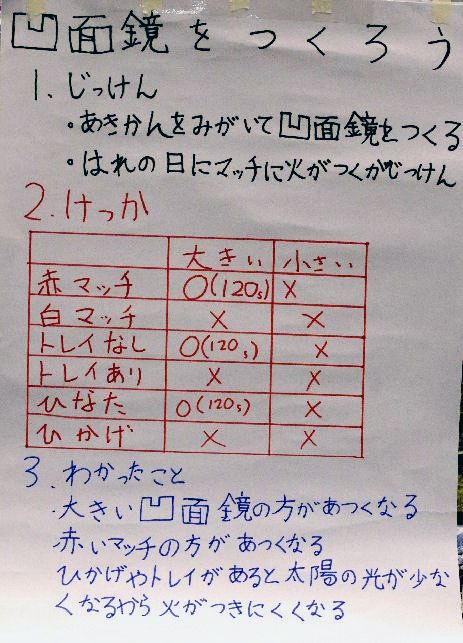 凹面鏡をつくろう
1. じっけん
・あきかんをみがいて凹面鏡をつくる
・はれの日にマッチに火がつくかじっけん
2. けっか
大きい 小さい
赤マッチ ○(120s) ×
白マッチ × ×
トレイなし ○(120s) ×
トレイあり × ×
ひなた ○(120s) ×
ひかげ × ×
3. わかったこと
・大きい凹面鏡の方があつくなる
・赤いマッチの方があつくなる
ひかげやトレイがあると太陽の光が少な
くなるから火がつきにくくなる